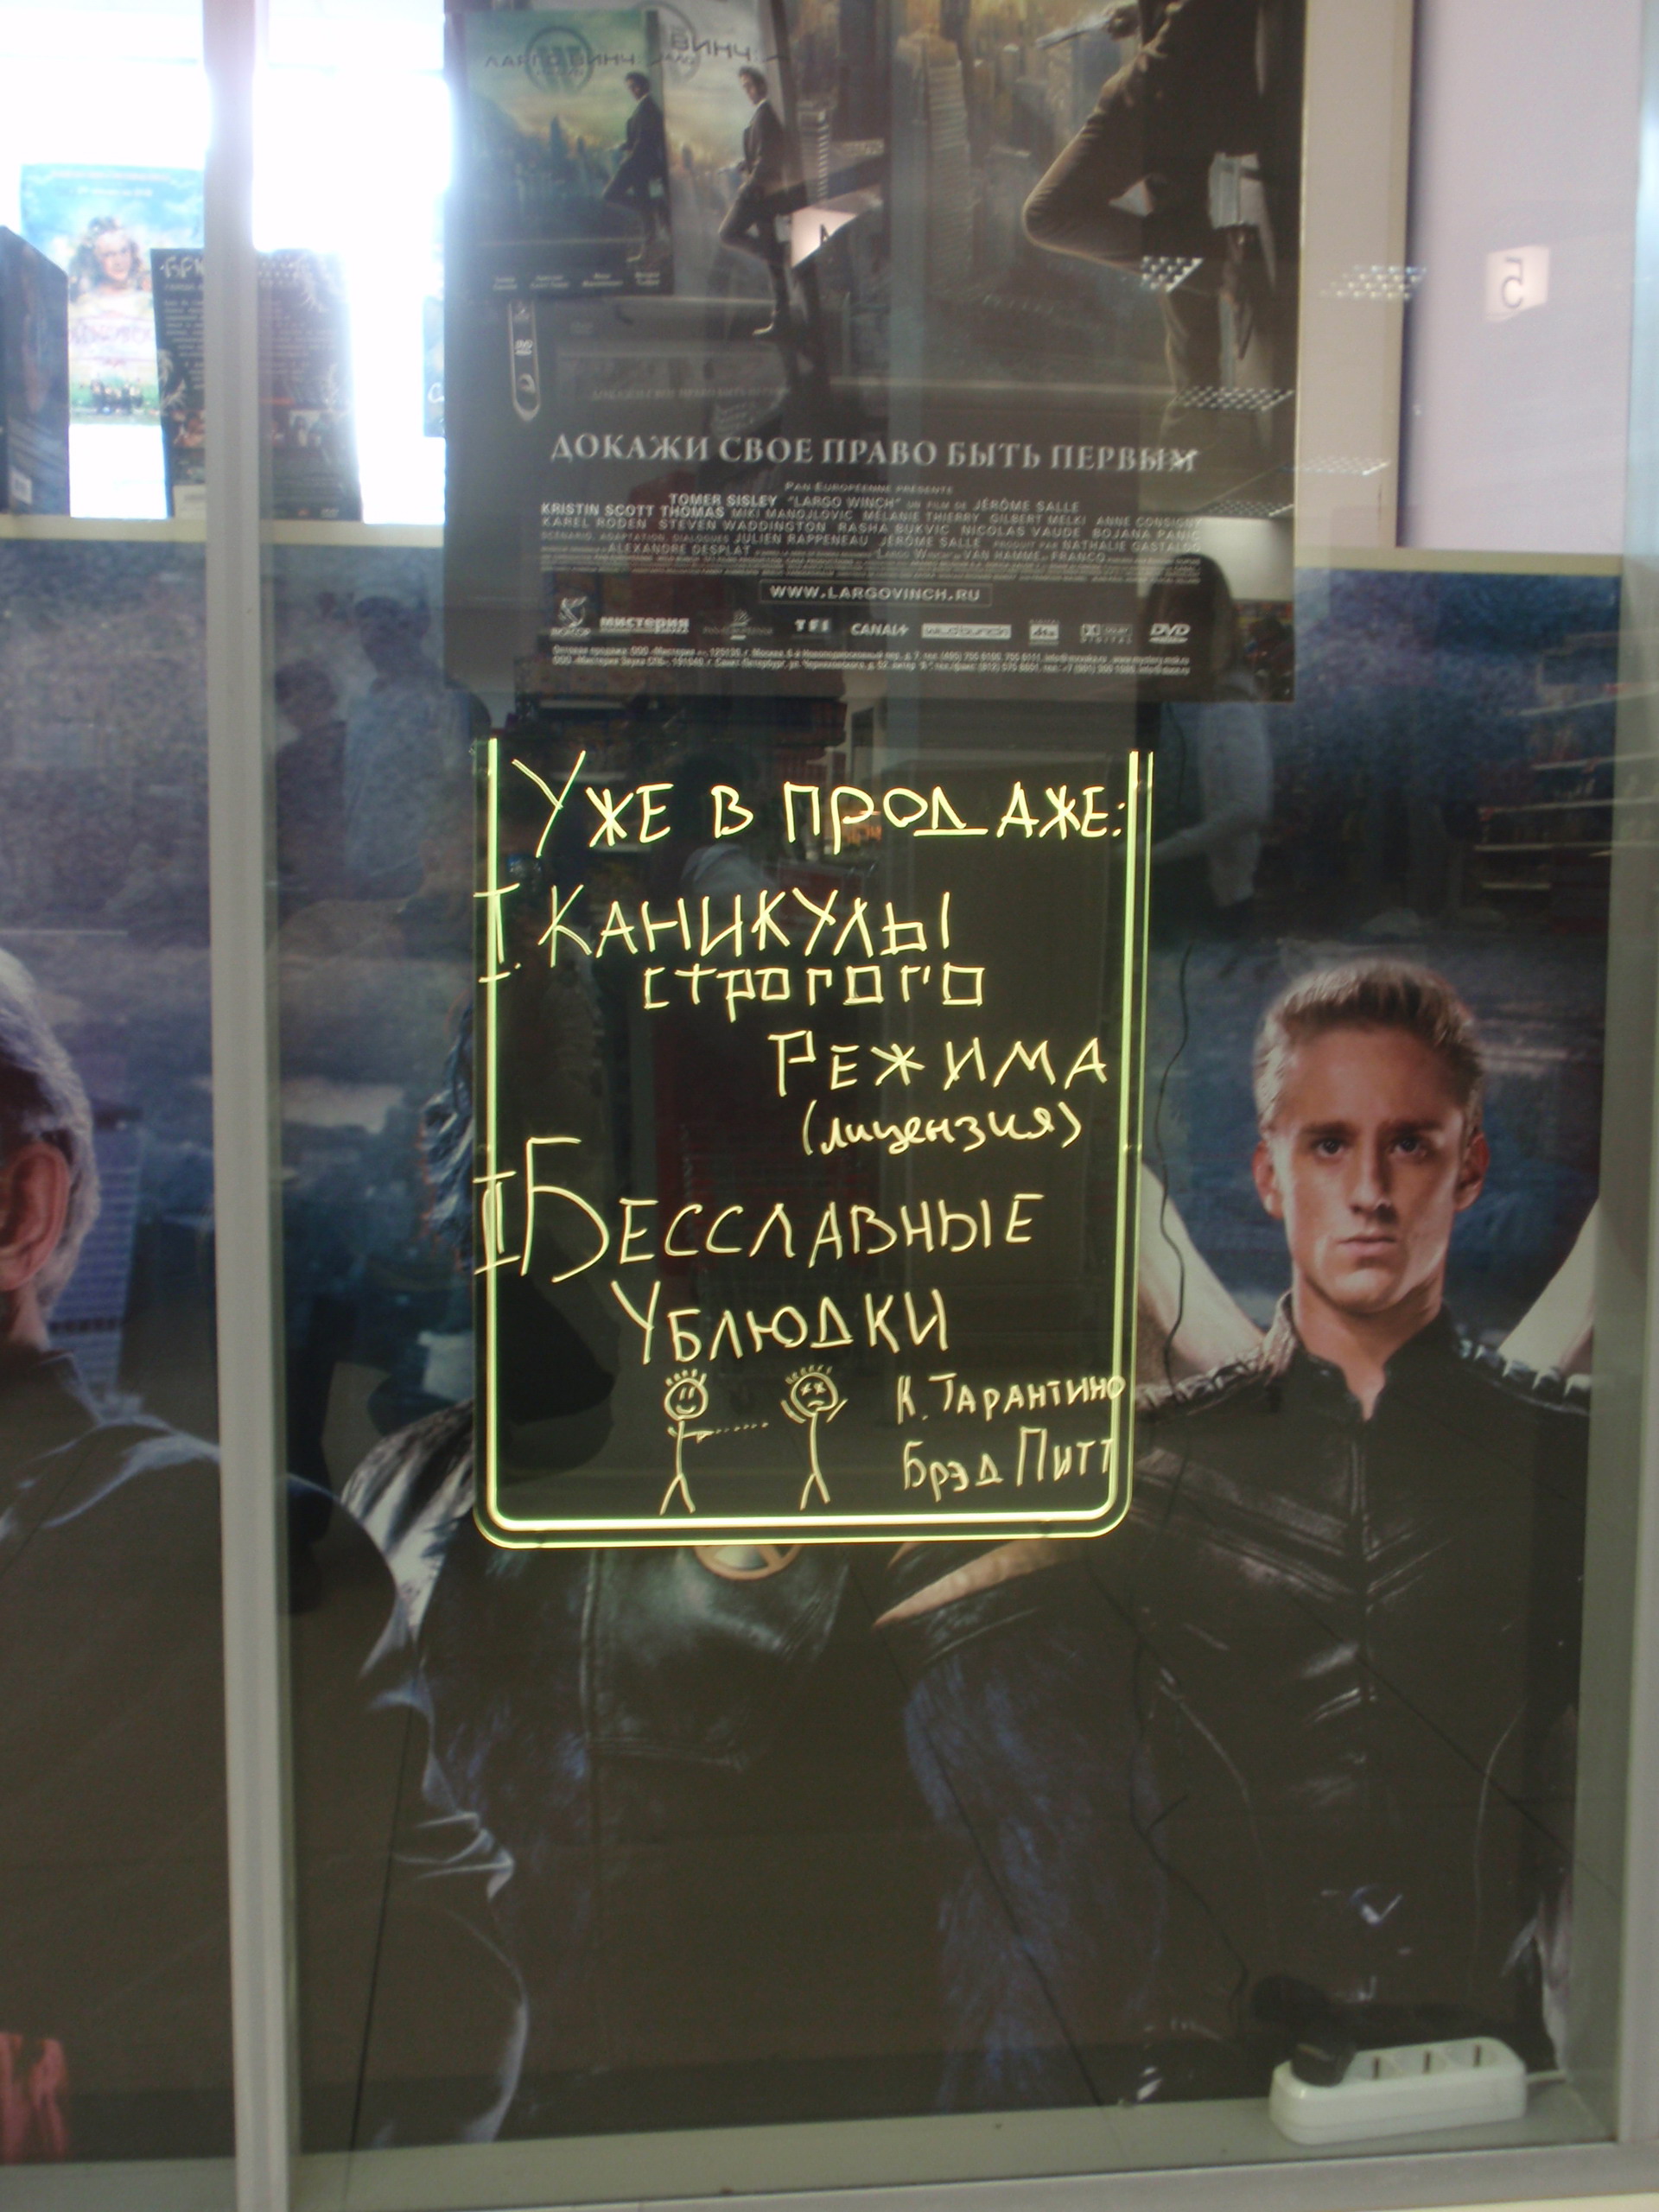 ЛАРГО ВИНЧ
ВИНЧ:
DVD
ДОКАЖИ СВОЕ ПРАВО БЫТЬ ПЕРВЫМ
PAN EUROPÉENNE PRÉSENTE
TOMER SISLEY "LARGO WINCH" UN FILM DE JÉRÔME SALLE
KRISTIN SCOTT THOMAS MIKI MANOJLOVIC MÉLANIE THIERRY GILBERT MELKI ANNE CONSIGNY
KAREL RODEN STEVEN WADDINGTON RASHA BUKVIC NICOLAS VAUDE BOJANA PANIC
SCÉNARIO, ADAPTATION, DIALOGUES JULIEN RAPPENEAU JÉRÔME SALLE PAR NATHALIE GASTALDO
ALEXANDRE DESPLAT "LARGO WINCH" VAN HAMME FRANCQ
WWW.LARGOVINCH.RU
мистерия TF1 CANAL+ dts DVD
Уже в продаже:
I. Каникулы
строгого
Режима
(лицензия)
II Бесславные
Ублюдки
К. Тарантино
Брэд Питт